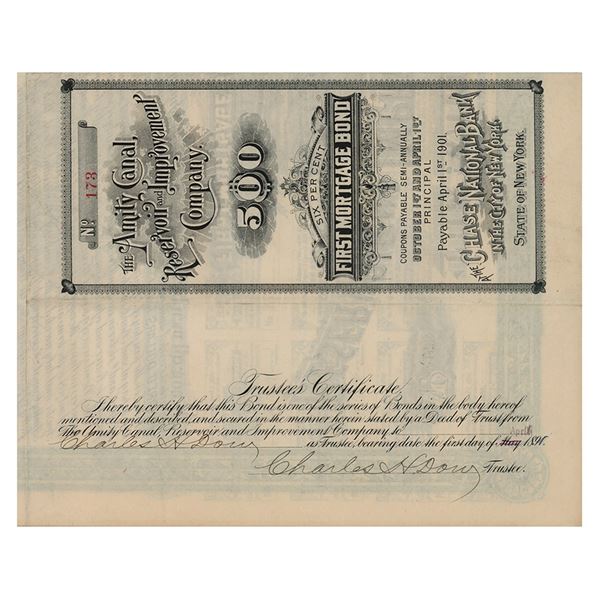 No 173
THE Amity Canal,
Reservoir and Improvement
Company.
500
SIX PER CENT
FIRST MORTGAGE BOND
COUPONS PAYABLE SEMI-ANNUALLY
OCTOBER 1ST AND APRIL 1ST
PRINCIPAL
Payable April 1ST 1901.
AT THE CHASE NATIONAL BANK
IN THE CITY OF NEW YORK.
STATE OF NEW YORK.
Trustee's Certificate
I hereby certify that this Bond is one of the series of Bonds in the body hereof
mentioned and described, and secured in the manner herein stated by a Deed of Trust from
The Amity Canal, Reservoir and Improvement Company to
Charles H Dow as Trustee, bearing date the first day of May April 1891.
Charles H Dow Trustee.